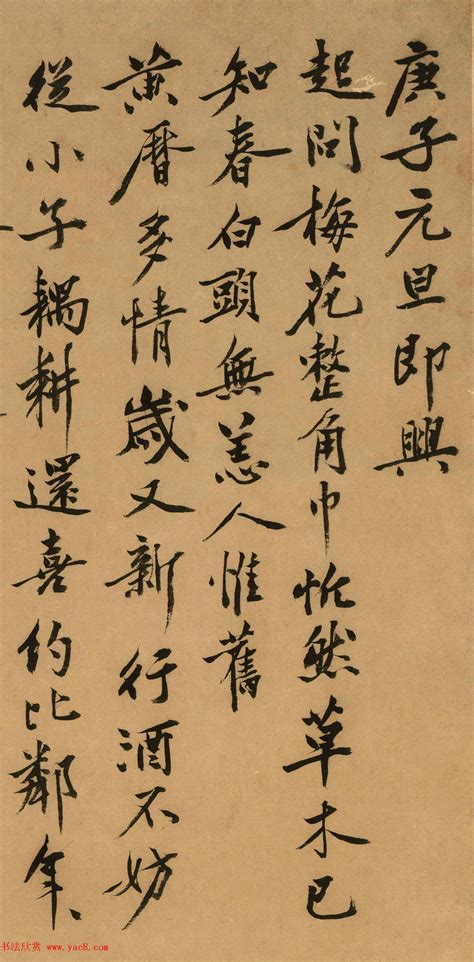 庚子元旦即興
起問梅花整角巾恍然草木已
知春白頭無恙人惟舊
黃曆多情歲又新行酒不妨
從小子耦耕還喜約比鄰年、
书法欣赏 www.yac8.com